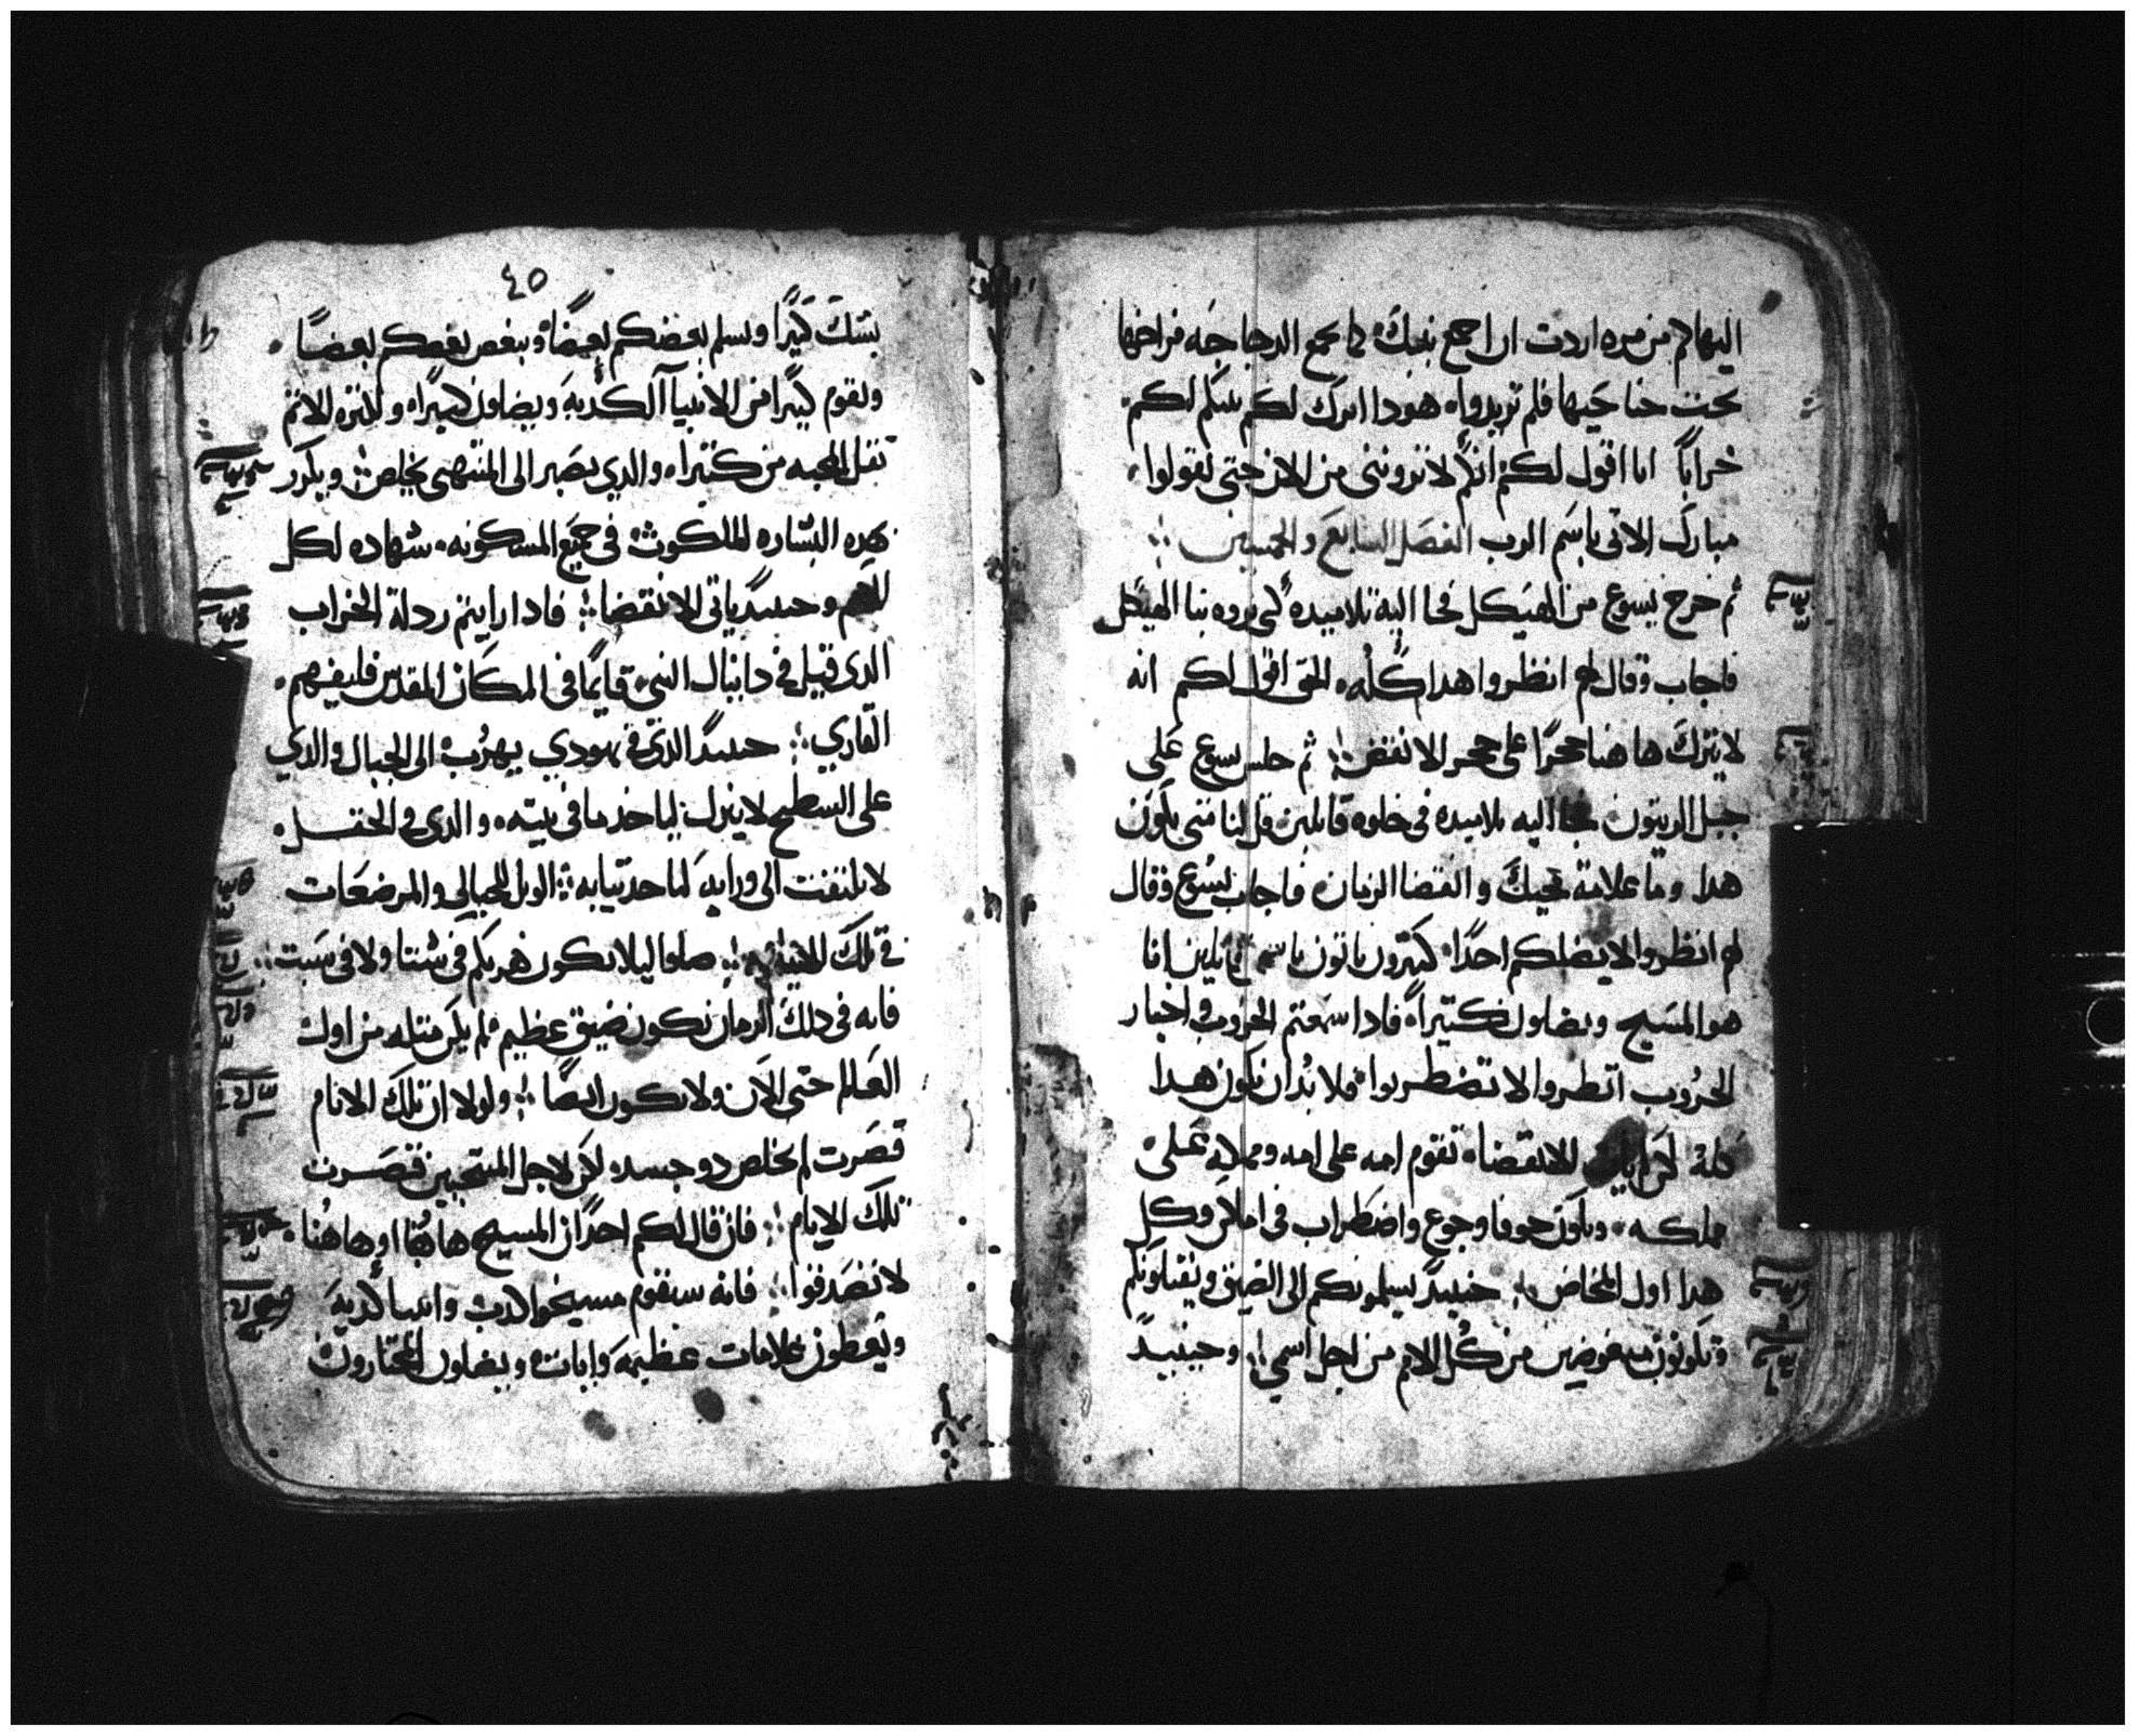 اليها كم من مره اردت ان اجمع بنيك كما تجمع الدجاجه فراخها
تحت جناحيها فلم تريدوا هودا اترك لكم بيتكم لكم
خرابا اما اقول لكم انكم لا ترونني من الان حتى تقولوا
مبارك الاتى باسم الرب الفصل السابع والخمسين
ثم خرج يسوع من الهيكل فجا اليه تلاميده لكى يروه بنا الهيكل
فاجاب وقال لهم انظروا هدا كله الحق اقول لكم انه
لا يترك هاهنا حجرا على حجر الا نقض ثم جلس يسوع على
جبل الزيتون فجا اليه تلاميده فى خلوه قايلين قل لنا متى يكون
هدا وما علامة مجيك وانقضا الزمان فاجاب يسوع وقال
لهم انظروا لا يضلكم احدا كتيرون ياتون باسمى قايلين انا
هو المسيح ويضلون كتيرا فادا سمعتم الحروب واخبار
الحروب انظروا لا تضطربوا فلا بد ان يكون هدا
كله لكن الانقضا تقوم امه على امه ومملكه على
مملكه ويكون خوفا وجوع واضطراب فى اماكن وكل
هدا اول المخاض حينيد يسلمونكم الى الضيق ويقتلونكم
وتكونون مبغوضين من كل الامم من اجل اسمي وحينيد
٤٥
يشك كتيرا ويسلم بعضكم بعضا ويبغض بعضكم بعضا
ويقوم كتيرا من الانبيا الكدبه ويضلون كتيرا ولكثره الاثم
تقل المحبه من كتيرا والدي يصبر الى المنتهى يخلص ويكرر
بهده البشاره للملكوت فى جميع المسكونه شهاده لكل
الامم وحينيد ياتى الانقضا فادا رايتم ردلة الخراب
الدى قيل فى دانيال النبي قايما فى المكان المقدس فليفهم
القاري حينيد الدى فى يهودي يهرب الى الجبال والدي
على السطح لا ينزل لياخد ما فى بيته والدى فى الحقل
لا يلتفت الى ورايه لياخد تيابه الويل للحبالى والمرضعات
فى تلك الايام صلوا ليلا يكون هربكم فى شتا ولا فى سبت
فانه فى دلك الزمان تكون ضيق عظيم لم يكن متله من اول
العالم حتى الان ولا يكون ايضا ولولا ان تلك الايام
قصرت لم يخلص دو جسد لكن لاجل المنتخبين قصرت
تلك الايام فان قال لكم احدا ان المسيح هاهنا او هاهنا
لا تصدقوا فانه سيقوم مسيحوا كدب وانبيا كدبه
ويعطون علامات عظيمه وايات ويضلون المختارون